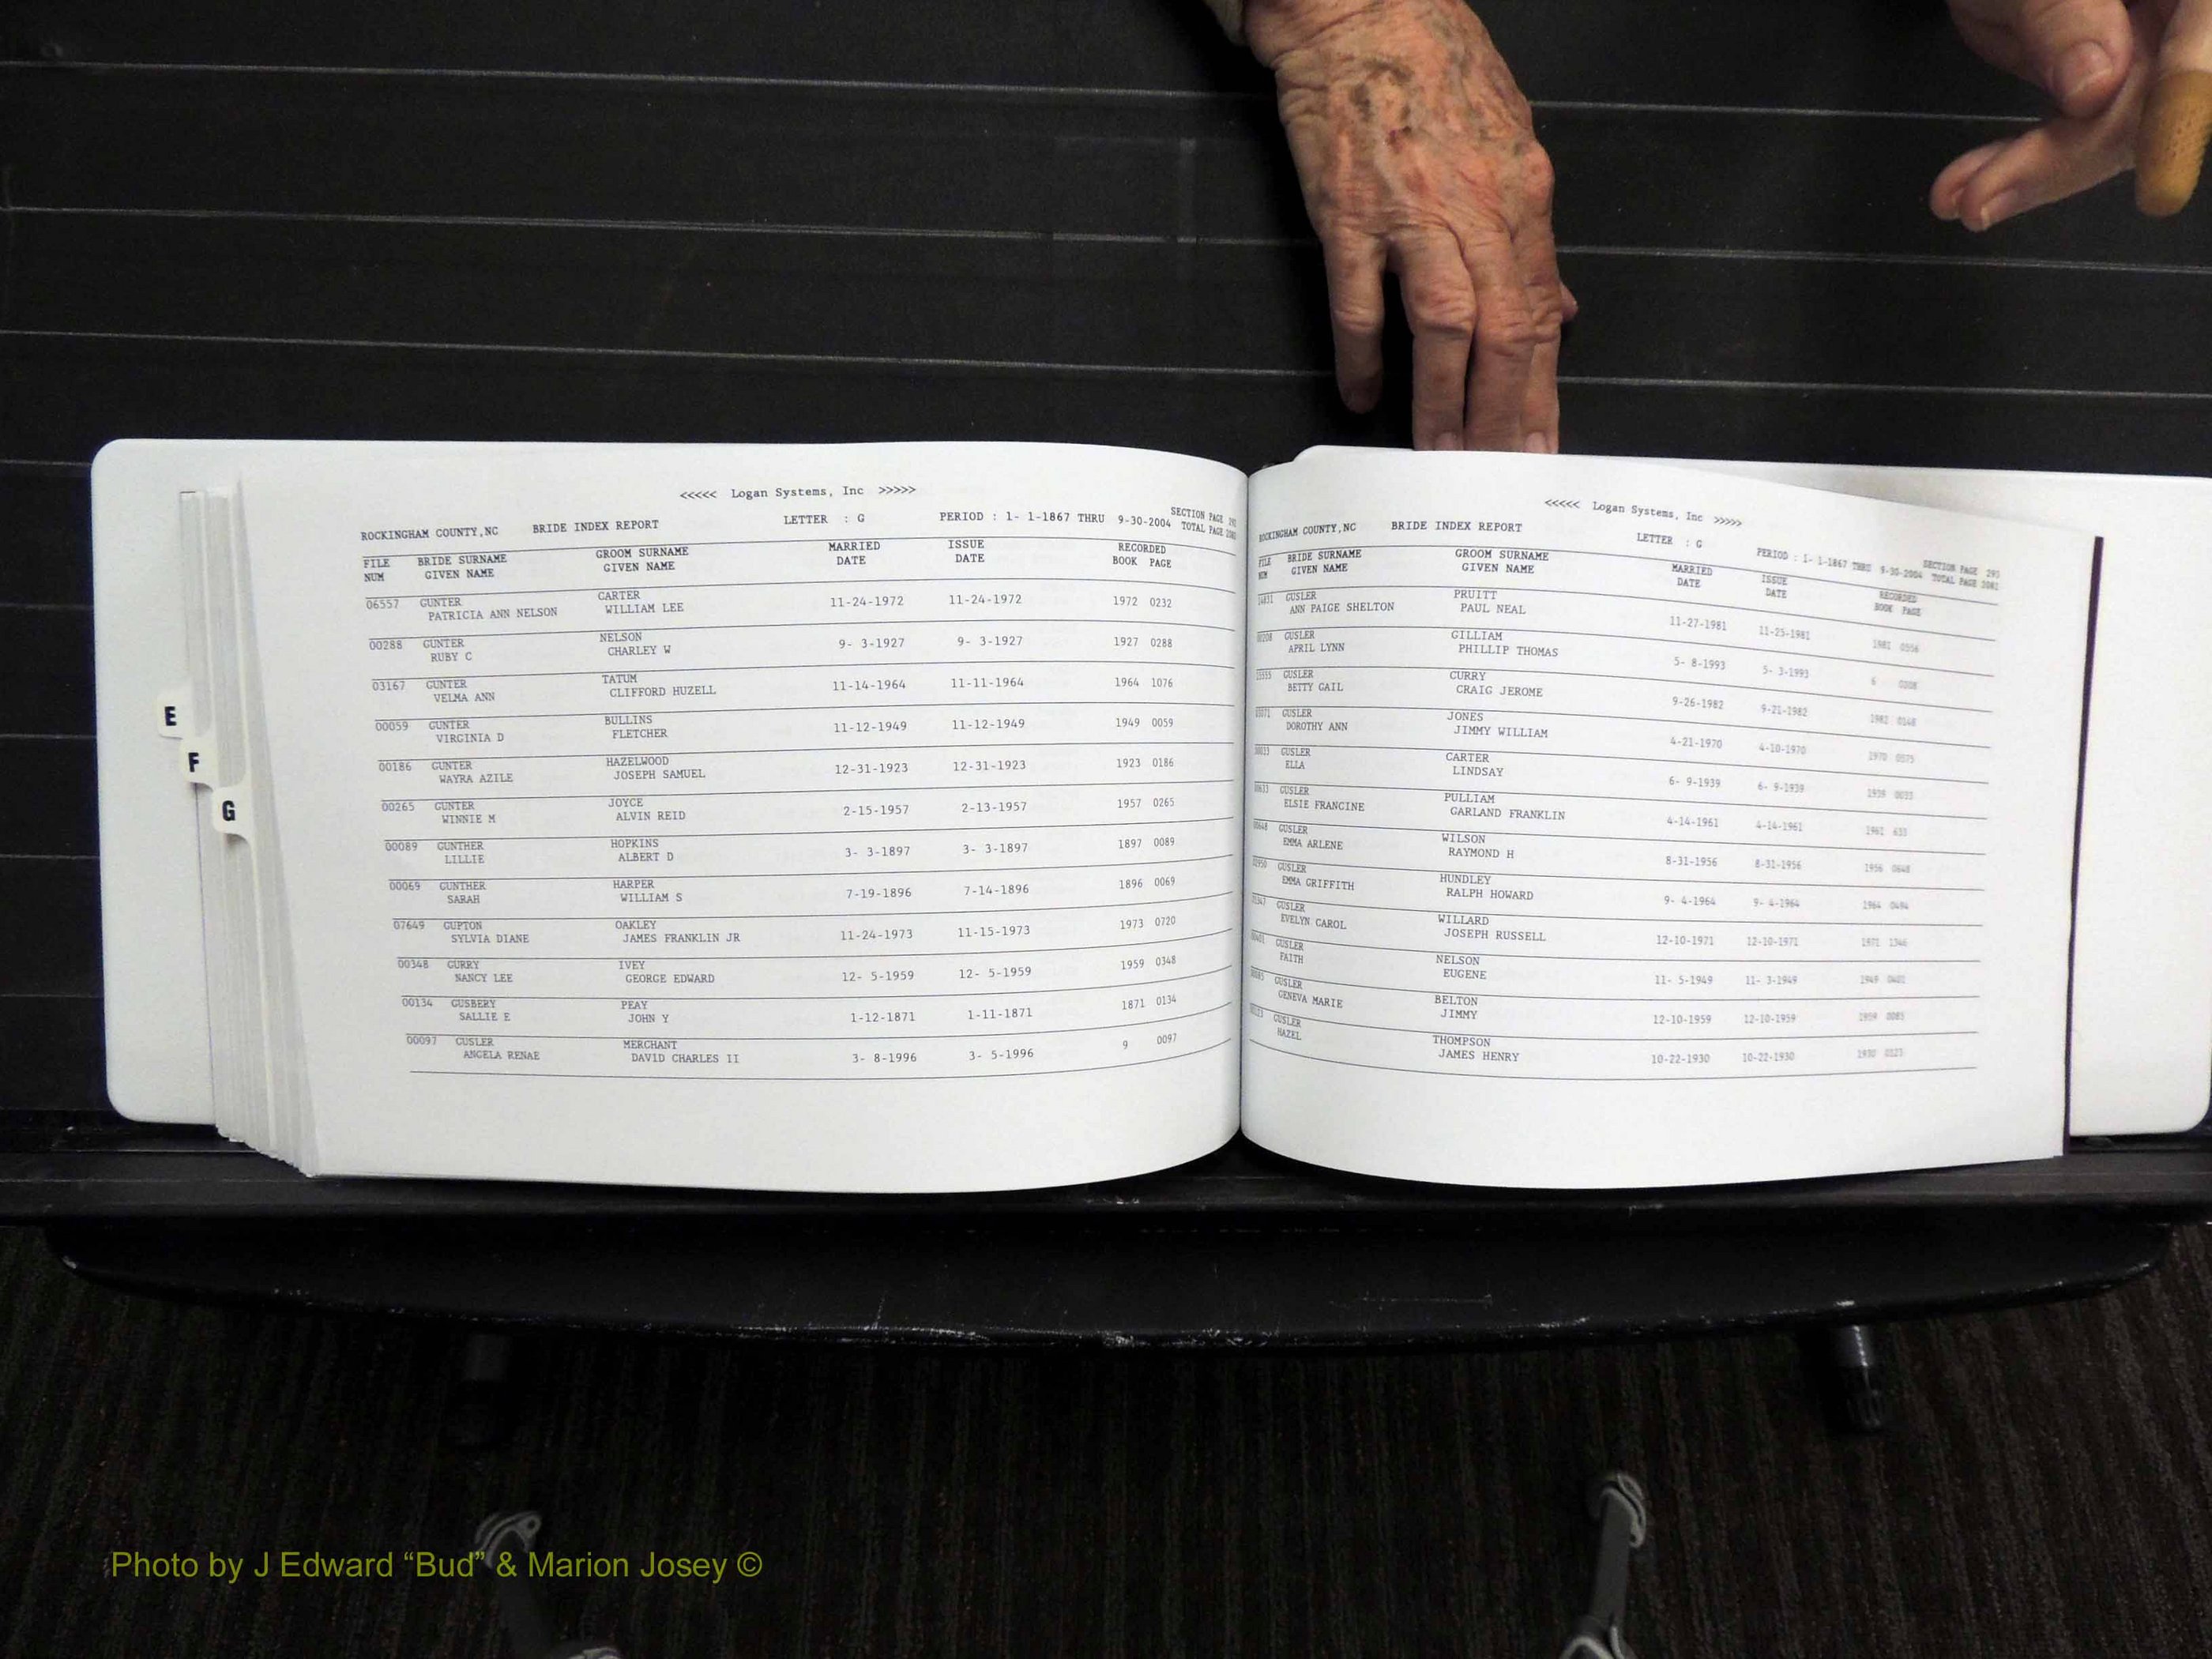 <<<<< Logan Systems, Inc >>>>>
ROCKINGHAM COUNTY,NC BRIDE INDEX REPORT LETTER : G PERIOD : 1- 1-1867 THRU 9-30-2004 SECTION PAGE
TOTAL PAGE
FILE BRIDE SURNAME GROOM SURNAME MARRIED ISSUE RECORDED
NUM GIVEN NAME GIVEN NAME DATE DATE BOOK PAGE
06557 GUNTER CARTER 11-24-1972 11-24-1972 1972 0232
PATRICIA ANN NELSON WILLIAM LEE
00288 GUNTER NELSON 9- 3-1927 9- 3-1927 1927 0288
RUBY C CHARLEY W
03167 GUNTER TATUM 11-14-1964 11-11-1964 1964 1076
VELMA ANN CLIFFORD HUZELL
00059 GUNTER BULLINS 11-12-1949 11-12-1949 1949 0059
VIRGINIA D FLETCHER
00186 GUNTER HAZELWOOD 12-31-1923 12-31-1923 1923 0186
WAYRA AZILE JOSEPH SAMUEL
00265 GUNTER JOYCE 2-15-1957 2-13-1957 1957 0265
WINNIE M ALVIN REID
00089 GUNTHER HOPKINS 3- 3-1897 3- 3-1897 1897 0089
LILLIE ALBERT D
00069 GUNTHER HARPER 7-19-1896 7-14-1896 1896 0069
SARAH WILLIAM S
07649 GUPTON OAKLEY 11-24-1973 11-15-1973 1973 0720
SYLVIA DIANE JAMES FRANKLIN JR
00348 GURRY IVEY 12- 5-1959 12- 5-1959 1959 0348
NANCY LEE GEORGE EDWARD
00134 GUSBERY PEAY 1-12-1871 1-11-1871 1871 0134
SALLIE E JOHN Y
00097 GUSLER MERCHANT 3- 8-1996 3- 5-1996 9 0097
ANGELA RENAE DAVID CHARLES II
E
F
G
<<<<< Logan Systems, Inc >>>>>
ROCKINGHAM COUNTY,NC BRIDE INDEX REPORT LETTER : G PERIOD : 1- 1-1867 THRU 9-30-2004 SECTION PAGE 293
TOTAL PAGE
FILE BRIDE SURNAME GROOM SURNAME MARRIED ISSUE RECORDED
NUM GIVEN NAME GIVEN NAME DATE DATE BOOK PAGE
GUSLER PRUITT 11-27-1981 11-25-1981 1981 0556
ANN PAIGE SHELTON PAUL NEAL
GUSLER GILLIAM 5- 8-1993 5- 3-1993 6 0208
APRIL LYNN PHILLIP THOMAS
GUSLER CURRY 9-26-1982 9-21-1982 1982 0548
BETTY GAIL CRAIG JEROME
GUSLER JONES 4-21-1970 4-10-1970 1970 0575
DOROTHY ANN JIMMY WILLIAM
GUSLER CARTER 6- 9-1939 6- 9-1939 1939 0033
ELLA LINDSAY
00633 GUSLER PULLIAM 4-14-1961 4-14-1961 1961 633
ELSIE FRANCINE GARLAND FRANKLIN
00648 GUSLER WILSON 8-31-1956 8-31-1956 1956 0648
EMMA ARLENE RAYMOND H
GUSLER HUNDLEY 9- 4-1964 9- 4-1964 1964 0494
EMMA GRIFFITH RALPH HOWARD
GUSLER WILLARD 12-10-1971 12-10-1971 1971 1346
EVELYN CAROL JOSEPH RUSSELL
GUSLER NELSON 11- 5-1949 11- 3-1949 1949 0401
FAITH EUGENE
00085 GUSLER BELTON 12-10-1959 12-10-1959 1959 0085
GENEVA MARIE JIMMY
GUSLER THOMPSON 10-22-1930 10-22-1930 1930
HAZEL JAMES HENRY
Photo by J Edward “Bud” & Marion Josey ©